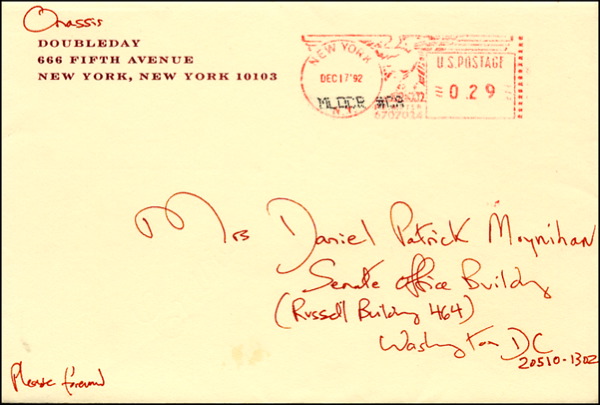 Onassis
DOUBLEDAY
666 FIFTH AVENUE
NEW YORK, NEW YORK 10103
NEW YORK
DEC 17'92
N.Y.
U.S. POSTAGE
0.29
Mrs Daniel Patrick Moynihan
Senate Office Building
(Russell Building 464)
Washington DC
20510-1302
Please forward